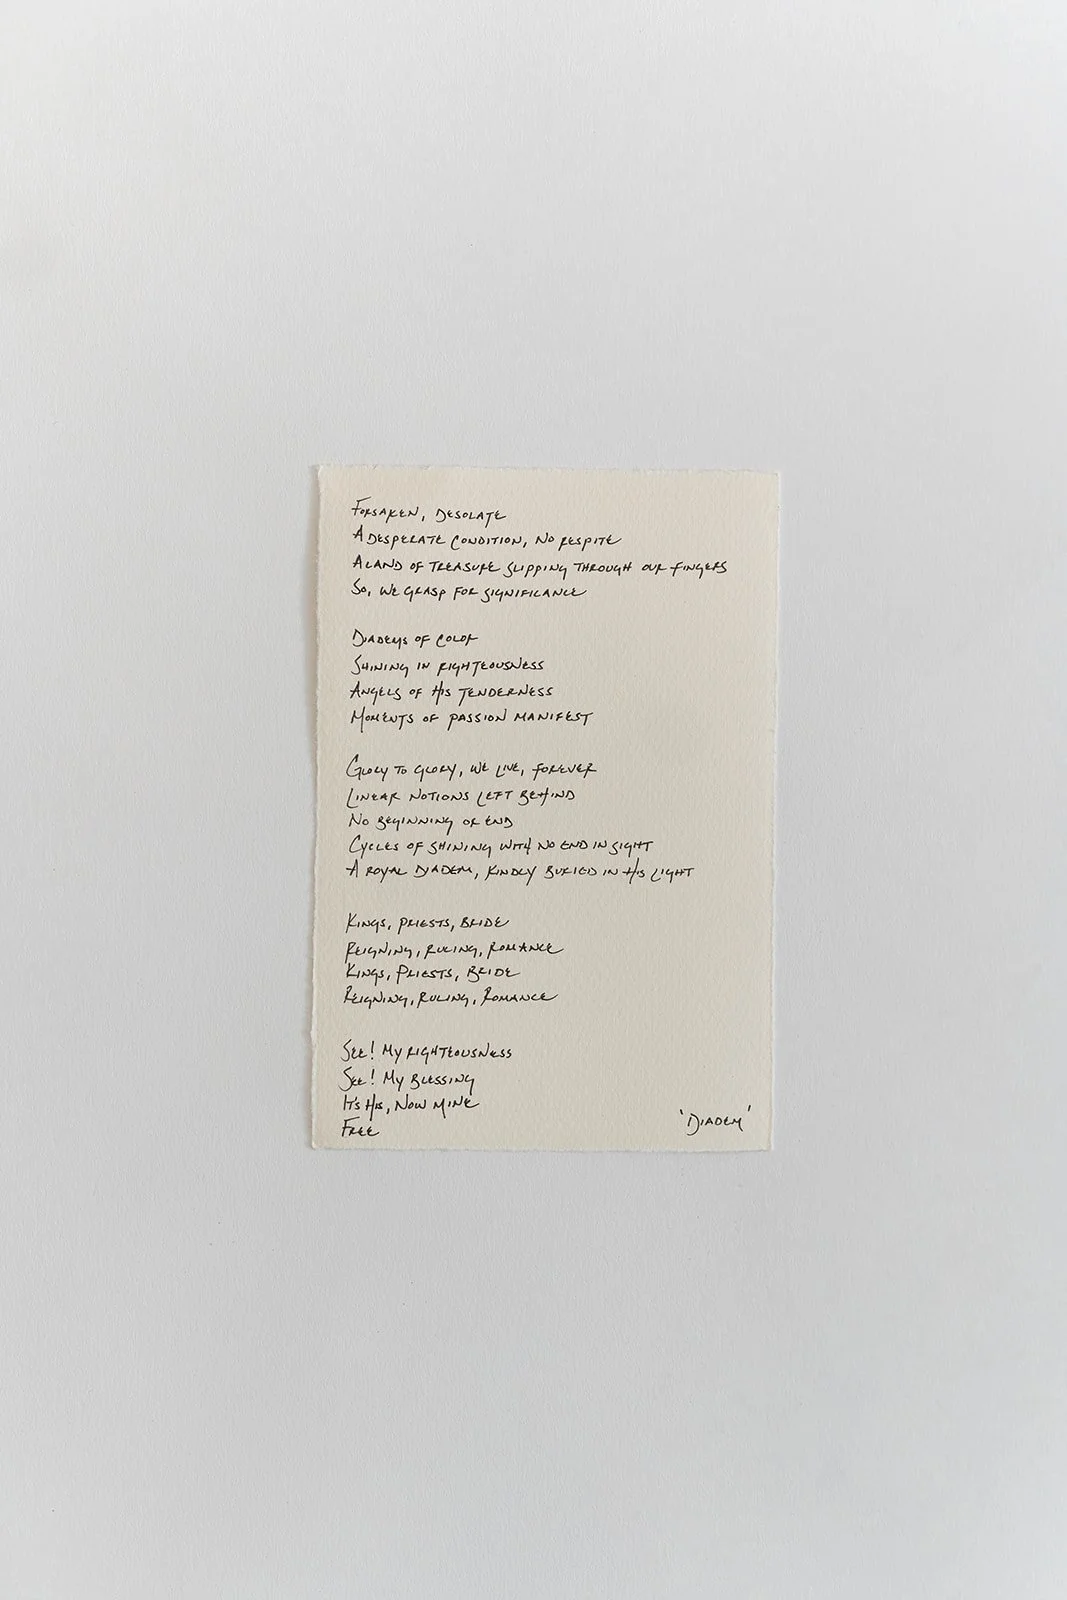 Forsaken, Desolate
A desperate condition, no respite
A land of treasure slipping through our fingers
So, we grasp for significance
Diadems of color
Shining in righteousness
Angels of His tenderness
Moments of passion manifest
Glory to glory, we live, forever
Linear notions left behind
No beginning or end
Cycles of shining with no end in sight
A royal diadem, kindly buried in His light
Kings, priests, bride
Reigning, ruling, romance
Kings, Priests, Bride
Reigning, Ruling, Romance
See! My righteousness
See! My blessing
It's His, now mine
Free
'Diadem'